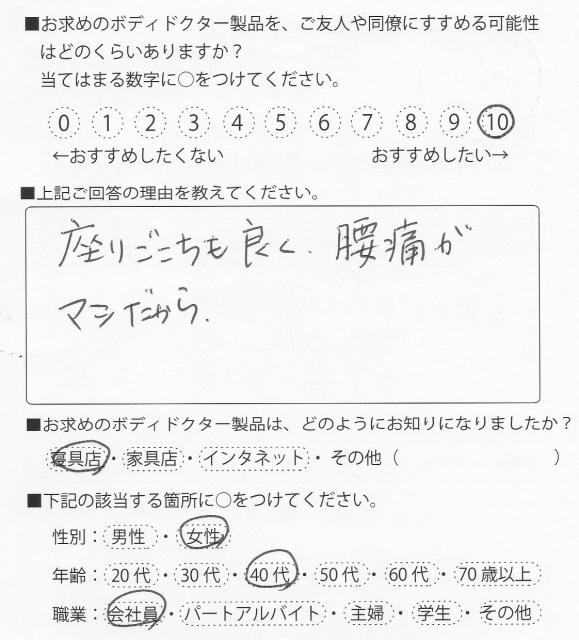 ■お求めのボディドクター製品を、ご友人や同僚にすすめる可能性
はどのくらいありますか？
当てはまる数字に○をつけてください。
0 1 2 3 4 5 6 7 8 9 10
←おすすめしたくない おすすめしたい→
■上記ご回答の理由を教えてください。
座りごこちも良く、腰痛が
マシだから.
■お求めのボディドクター製品は、どのようにお知りになりましたか？
寝具店・家具店・インタネット・その他（ ）
■下記の該当する箇所に○をつけてください。
性別：男性・女性
年齢：20代・30代・40代・50代・60代・70歳以上
職業：会社員・パートアルバイト・主婦・学生・その他